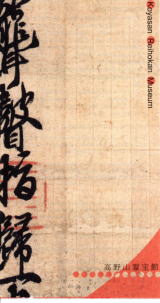 Koyasan Reihokan Museum
聾瞽指歸
高野山霊宝館